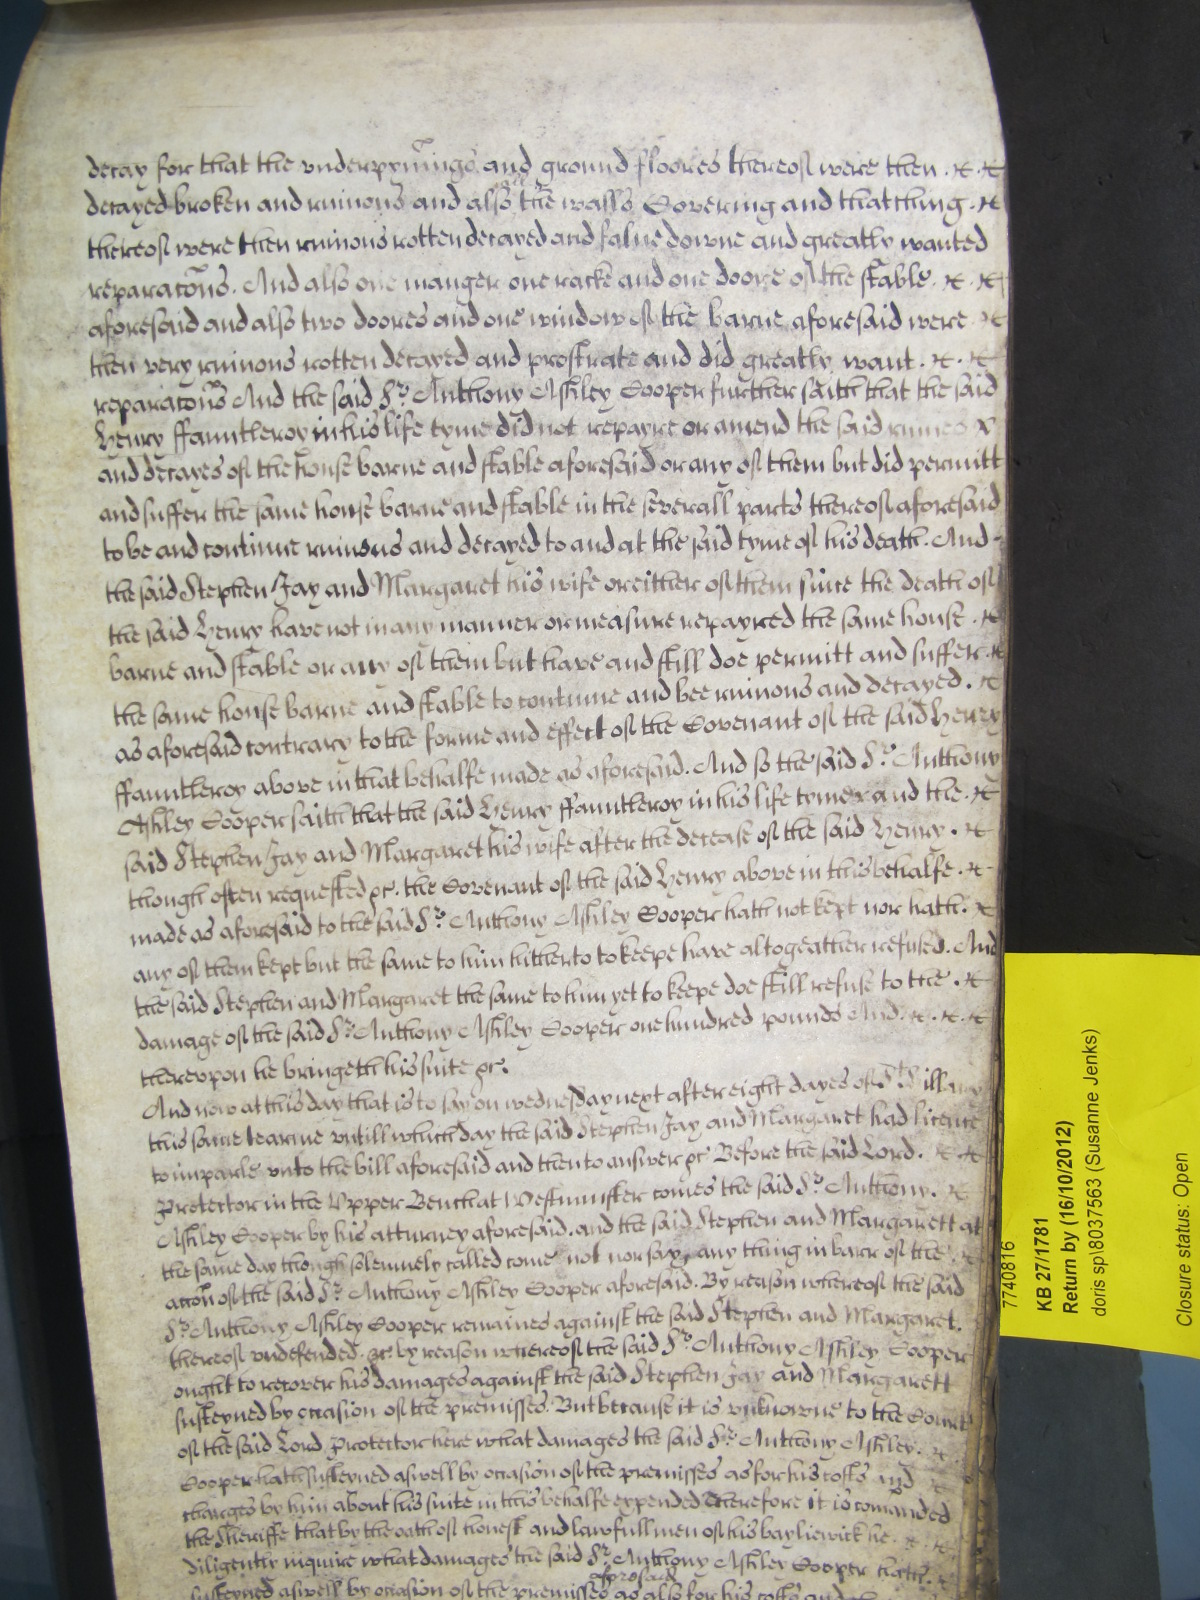 decay for that the underpyninge and ground floores thereof were then
decayed broken and ruinous and also the walls Covering and thatching
thereof were then ruinous rotten decayed and falne downe and greatly wanted
reparacons. And also one manger one racke and one doore of the stable
aforesaid and also two doores and one window of the barne aforesaid were
then very ruinous rotten decayed and prostrate and did greatly want
reparacons And the said Sr. Anthony Ashley Cooper further saith that the said
Henry ffauntleroy in his life tyme did not repayre or amend the said ruines
and decayes of the house barne and stable aforesaid or any of them but did permitt
and suffer the same house barne and stable in the severall parts thereof aforesaid
to be and continue ruinous and decayed to and at the said tyme of his death. And
the said Stephen Jay and Margaret his wife or either of them since the death of
the said Henry have not in any manner or measure repayred the same house
barne and stable or any of them but have and still doe permitt and suffer
the same house barne and stable to continue and bee ruinous and decayed.
as aforesaid contrary to the forme and effect of the Covenant of the said Henry
ffauntleroy above in that behalfe made as aforesaid. And so the said Sr. Anthony
Ashley Cooper saith that the said Henry ffauntleroy in his life tyme and the
said Stephen Jay and Margaret his wife after the decease of the said Henry.
though often requested &c. the Covenant of the said Henry above in this behalfe
made as aforesaid to the said Sr. Anthony Ashley Cooper hath not kept nor hath
any of them kept but the same to him hitherto to keepe have altogeather refused. And
the said Stephen and Margaret the same to him yet to keepe doe still refuse to the
damage of the said Sr. Anthony Ashley Cooper one hundred pounds And
thereupon he bringeth his suite &c.
And now at this day that is to say on wednesday next after eight dayes of St. Hillary
this same tearme untill which day the said Stephen Jay and Margaret had licence
to imparle unto the bill aforesaid and then to answer &c Before the said Lord.
Protector in the Upper Bench at Westminster comes the said Sr. Anthony.
Ashley Cooper by his atturney aforesaid. and the said Stephen and Margarett at
the same day though solemnely called come not nor say any thing in barr of the
accon of the said Sr. Anthony Ashley Cooper aforesaid. By reason whereof the said
Sr. Anthony Ashley Cooper remaines against the said Stephen and Margaret.
thereof undefended. &c. by reason whereof the said Sr. Anthony Ashley Cooper
ought to recover his damages against the said Stephen Jay and Margarett
susteyned by occasion of the premisses. But because it is unknowne to the Court
of the said Lord Protector here what damages the said Sr. Anthony Ashley.
Cooper hath susteyned aswell by occasion of the premisses as for his costs and
charges by him about his suite in this behalfe expended Therefore it is comanded
the Sheriffe that by the oath of honest and lawfull men of his bayliewick he
diligently inquire what damages the said Sr. Anthony Ashley Cooper hath.
aforesaid
susteyned aswell by occasion of the premisses as also for his costs and
7740816
KB 27/1781
Return by (16/10/2012)
doris sp\8037563 (Susanne Jenks)
Closure status: Open